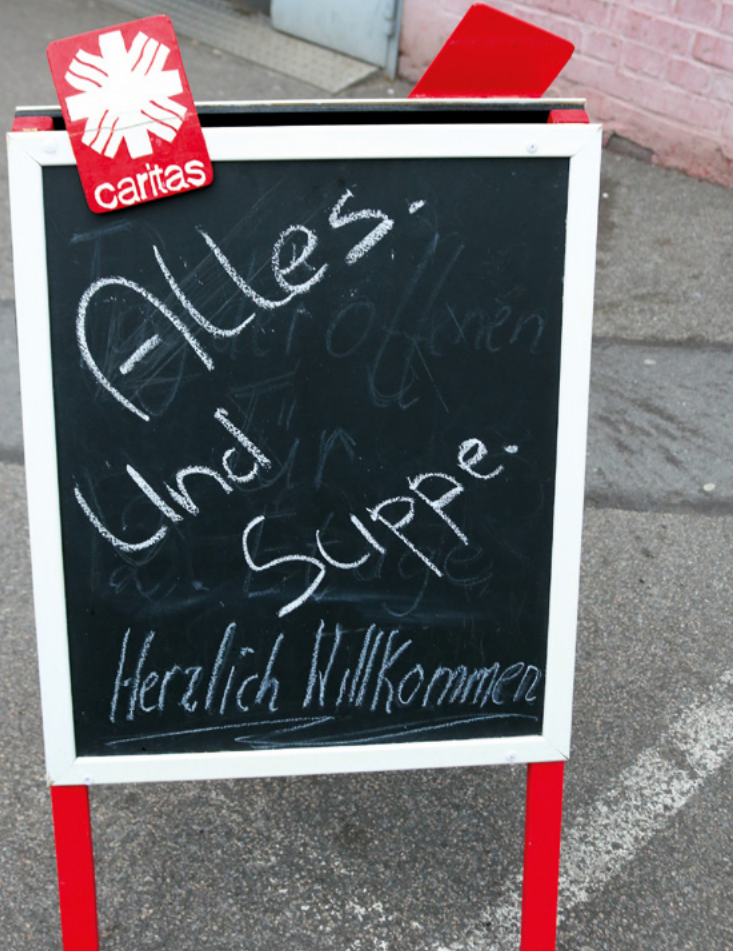 caritas
Alles.
Und
Suppe.
Herzlich Willkommen